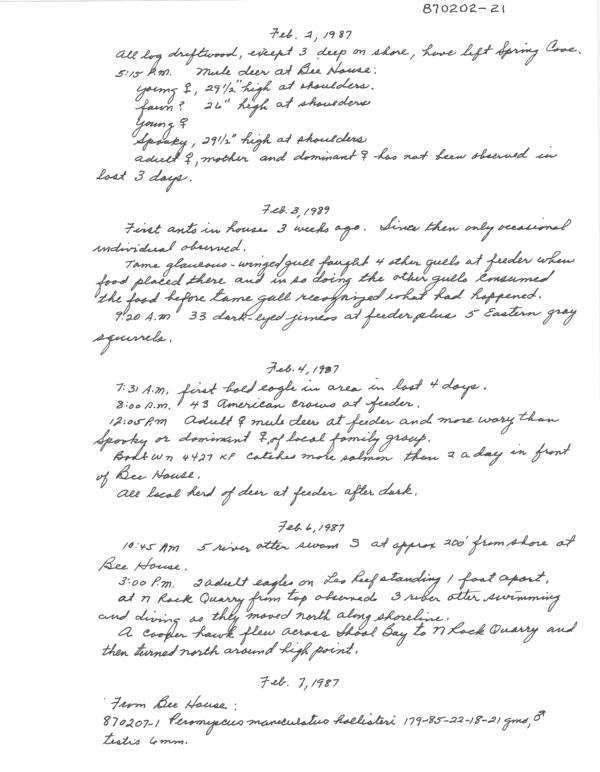 870202-21
Feb. 2, 1987
All log driftwood, except 3 deep on shore, have left Spring Cove.
5:15 P.M. Mule deer at Bee House:
young ♀, 29 1/2" high at shoulders.
fawn? 26" high at shoulders
Young ♀
Spooky, 29 1/2" high at shoulders
adult ♀, mother and dominant ♀ has not been observed in
last 3 days.
Feb. 3, 1989
First ants in house 3 weeks ago. Since then only occasional
individual observed.
Tame glaucous-winged gull fought 4 other gulls at feeder when
food placed there and in so doing the other gulls consumed
the food before tame gull recognized what had happened.
9:20 A.M 33 dark-eyed juncos at feeder plus 5 Eastern gray
squirrels.
Feb. 4, 1987
7:31 A.M. first bald eagle in area in last 4 days.
8:00 A.M. 43 American crows at feeder.
12:05 P.M Adult ♀ mule deer at feeder and more wary than
Spooky or dominant ♀ of local family group.
Boat WN 4427 KF catches more salmon than 2 a day in front
of Bee House.
All local herd of deer at feeder after dark.
Feb. 6, 1987
10:45 AM 5 river otter swam S at approx 200' from shore at
Bee House.
3:00 P.M. 2 adult eagles on Leo Reef standing 1 foot apart.
at N Rock Quarry from top observed 3 river otter swimming
and diving as they moved north along shoreline.
A cooper hawk flew across Shoal Bay to N Rock Quarry and
then turned north around high point.
Feb. 7, 1987
From Bee House:
870207-1 Peromyscus maniculatus hollisteri 179-85-22-18-21 gms, ♂
testis 6mm.